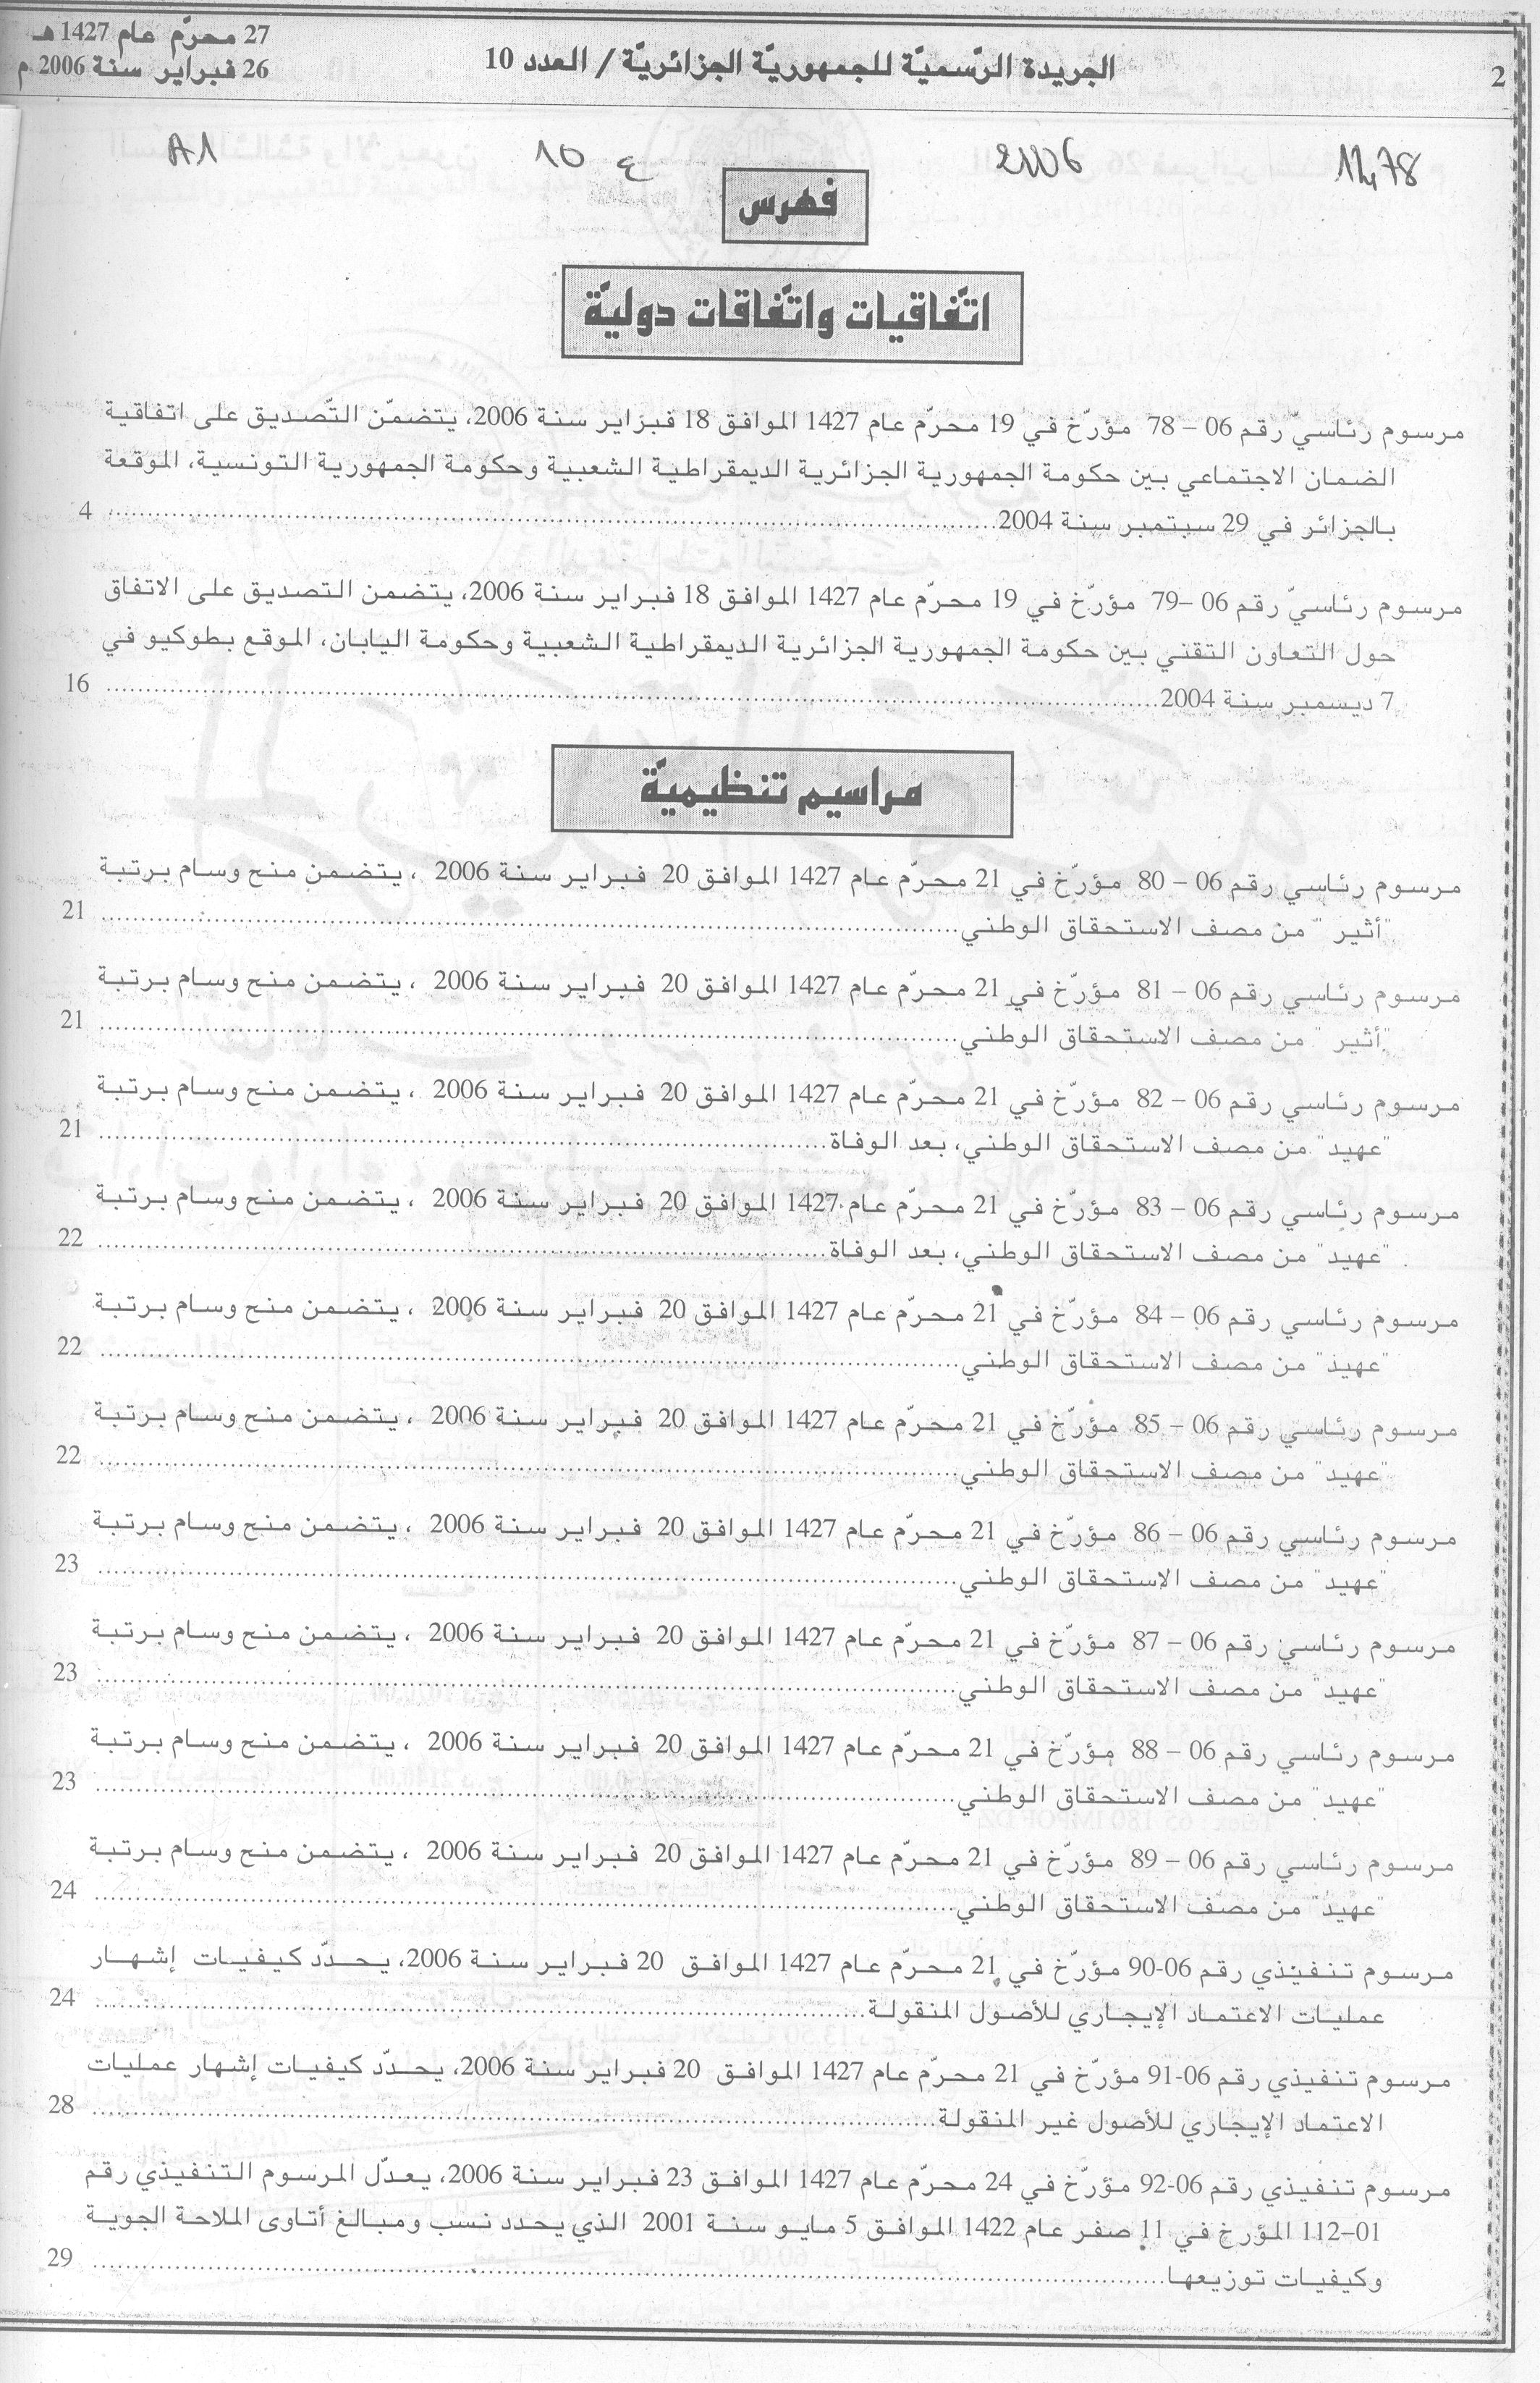 2
الجريدة الرّسميّة للجمهوريّة الجزائريّة / العدد 10
27 محرّم عام 1427 هـ
26 فبراير سنة 2006 م
A1
10 ع
فهرس
اتّفاقيات واتّفاقات دوليّة
مرسوم رئاسيّ رقم 06 – 78 مؤرّخ في 19 محرّم عام 1427 الموافق 18 فبراير سنة 2006، يتضمّن التّصديق على اتفاقية
الضمان الاجتماعي بين حكومة الجمهورية الجزائرية الديمقراطية الشعبية وحكومة الجمهورية التونسية، الموقعة
بالجزائر في 29 سبتمبر سنة 2004.......... 4
مرسوم رئاسيّ رقم 06 –79 مؤرّخ في 19 محرّم عام 1427 الموافق 18 فبراير سنة 2006، يتضمن التصديق على الاتفاق
حول التعاون التقني بين حكومة الجمهورية الجزائرية الديمقراطية الشعبية وحكومة اليابان، الموقع بطوكيو في
7 ديسمبر سنة 2004.......... 16
مراسيم تنظيميّة
مرسوم رئاسي رقم 06 – 80 مؤرّخ في 21 محرّم عام 1427 الموافق 20 فبراير سنة 2006 ، يتضمن منح وسام برتبة
"أثير " من مصف الاستحقاق الوطني.......... 21
مرسوم رئاسي رقم 06 – 81 مؤرّخ في 21 محرّم عام 1427 الموافق 20 فبراير سنة 2006 ، يتضمن منح وسام برتبة
"أثير " من مصف الاستحقاق الوطني.......... 21
مرسوم رئاسي رقم 06 – 82 مؤرّخ في 21 محرّم عام 1427 الموافق 20 فبراير سنة 2006 ، يتضمن منح وسام برتبة
"عهيد" من مصف الاستحقاق الوطني، بعد الوفاة.......... 21
مرسوم رئاسي رقم 06 – 83 مؤرّخ في 21 محرّم عام 1427 الموافق 20 فبراير سنة 2006 ، يتضمن منح وسام برتبة
"عهيد" من مصف الاستحقاق الوطني، بعد الوفاة.......... 22
مرسوم رئاسي رقم 06 – 84 مؤرّخ في 21 محرّم عام 1427 الموافق 20 فبراير سنة 2006 ، يتضمن منح وسام برتبة
"عهيد" من مصف الاستحقاق الوطني.......... 22
مرسوم رئاسي رقم 06 – 85 مؤرّخ في 21 محرّم عام 1427 الموافق 20 فبراير سنة 2006 ، يتضمن منح وسام برتبة
"عهيد" من مصف الاستحقاق الوطني.......... 22
مرسوم رئاسي رقم 06 – 86 مؤرّخ في 21 محرّم عام 1427 الموافق 20 فبراير سنة 2006 ، يتضمن منح وسام برتبة
"عهيد" من مصف الاستحقاق الوطني.......... 23
مرسوم رئاسي رقم 06 – 87 مؤرّخ في 21 محرّم عام 1427 الموافق 20 فبراير سنة 2006 ، يتضمن منح وسام برتبة
"عهيد" من مصف الاستحقاق الوطني.......... 23
مرسوم رئاسي رقم 06 – 88 مؤرّخ في 21 محرّم عام 1427 الموافق 20 فبراير سنة 2006 ، يتضمن منح وسام برتبة
"عهيد" من مصف الاستحقاق الوطني.......... 23
مرسوم رئاسي رقم 06 – 89 مؤرّخ في 21 محرّم عام 1427 الموافق 20 فبراير سنة 2006 ، يتضمن منح وسام برتبة
"عهيد" من مصف الاستحقاق الوطني.......... 24
مرسوم تنفيذي رقم 06-90 مؤرّخ في 21 محرّم عام 1427 الموافق 20 فبراير سنة 2006، يحدّد كيفيات إشهار
عمليات الاعتماد الإيجاري للأصول المنقولة.......... 24
مرسوم تنفيذي رقم 06-91 مؤرّخ في 21 محرّم عام 1427 الموافق 20 فبراير سنة 2006، يحدّد كيفيات إشهار عمليات
الاعتماد الإيجاري للأصول غير المنقولة.......... 28
مرسوم تنفيذي رقم 06-92 مؤرّخ في 24 محرّم عام 1427 الموافق 23 فبراير سنة 2006، يعدّل المرسوم التنفيذي رقم
01–112 المؤرخ في 11 صفر عام 1422 الموافق 5 مايو سنة 2001 الذي يحدد نسب ومبالغ أتاوى الملاحة الجوية
وكيفيات توزيعها.......... 29